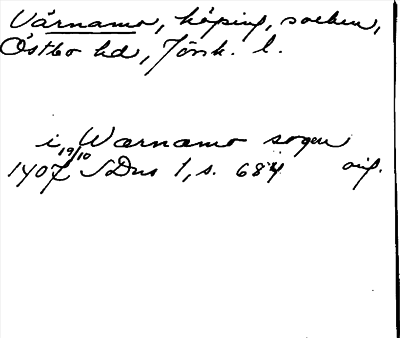 Värnamo, köping, socken,
Östbo hd, Jönk. l.
i Warnamo sogen
1407 19/10 SDns 1, s. 684 orig.